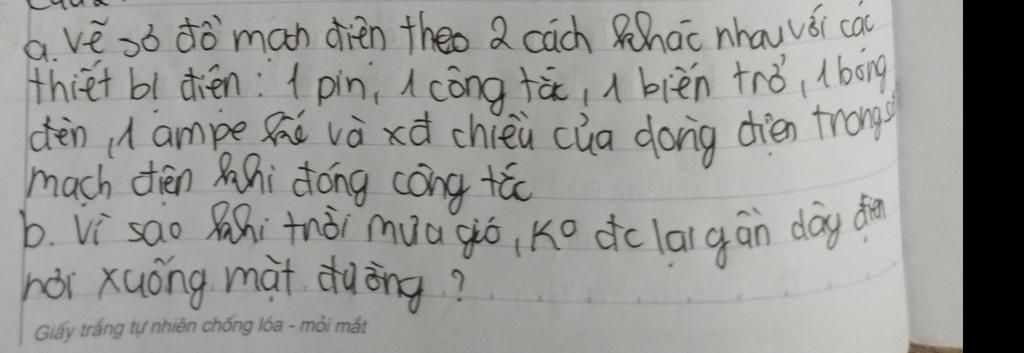 a. Vẽ sơ đồ mạch điện theo 2 cách khác nhau với các
thiết bị điện: 1 pin, 1 công tắc, 1 biến trở, 1 bóng
đèn, 1 ampe kế và xđ chiều của dòng điện trong sơ
mạch điện khi đóng công tắc
b. Vì sao khi trời mưa gió, ko đc lại gần dây điện
rơi xuống mặt đường?
Giấy trắng tự nhiên chống lóa - mỏi mắt